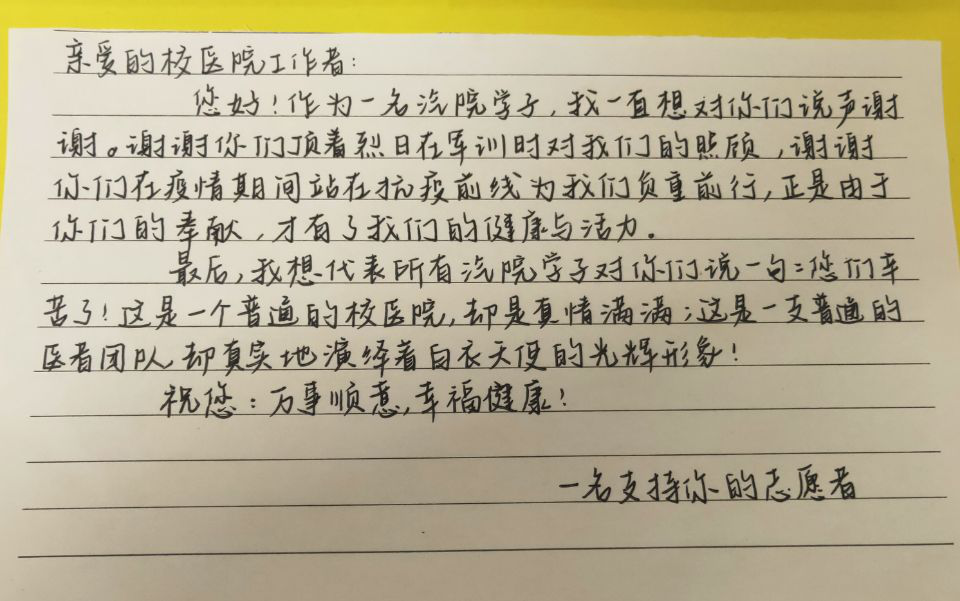 亲爱的校医院工作者：
您好！作为一名汽院学子，我一直想对你们说声谢
谢。谢谢你们顶着烈日在军训时对我们的照顾，谢谢
你们在疫情期间站在抗疫前线为我们负重前行，正是由于
你们的奉献，才有了我们的健康与活力。
最后，我想代表所有汽院学子对你们说一句：您们辛
苦了！这是一个普通的校医院，却是真情满满；这是一支普通的
医者团队，却真实地演绎着白衣天使的光辉形象！
祝您：万事顺意，幸福健康！
一名支持你的志愿者